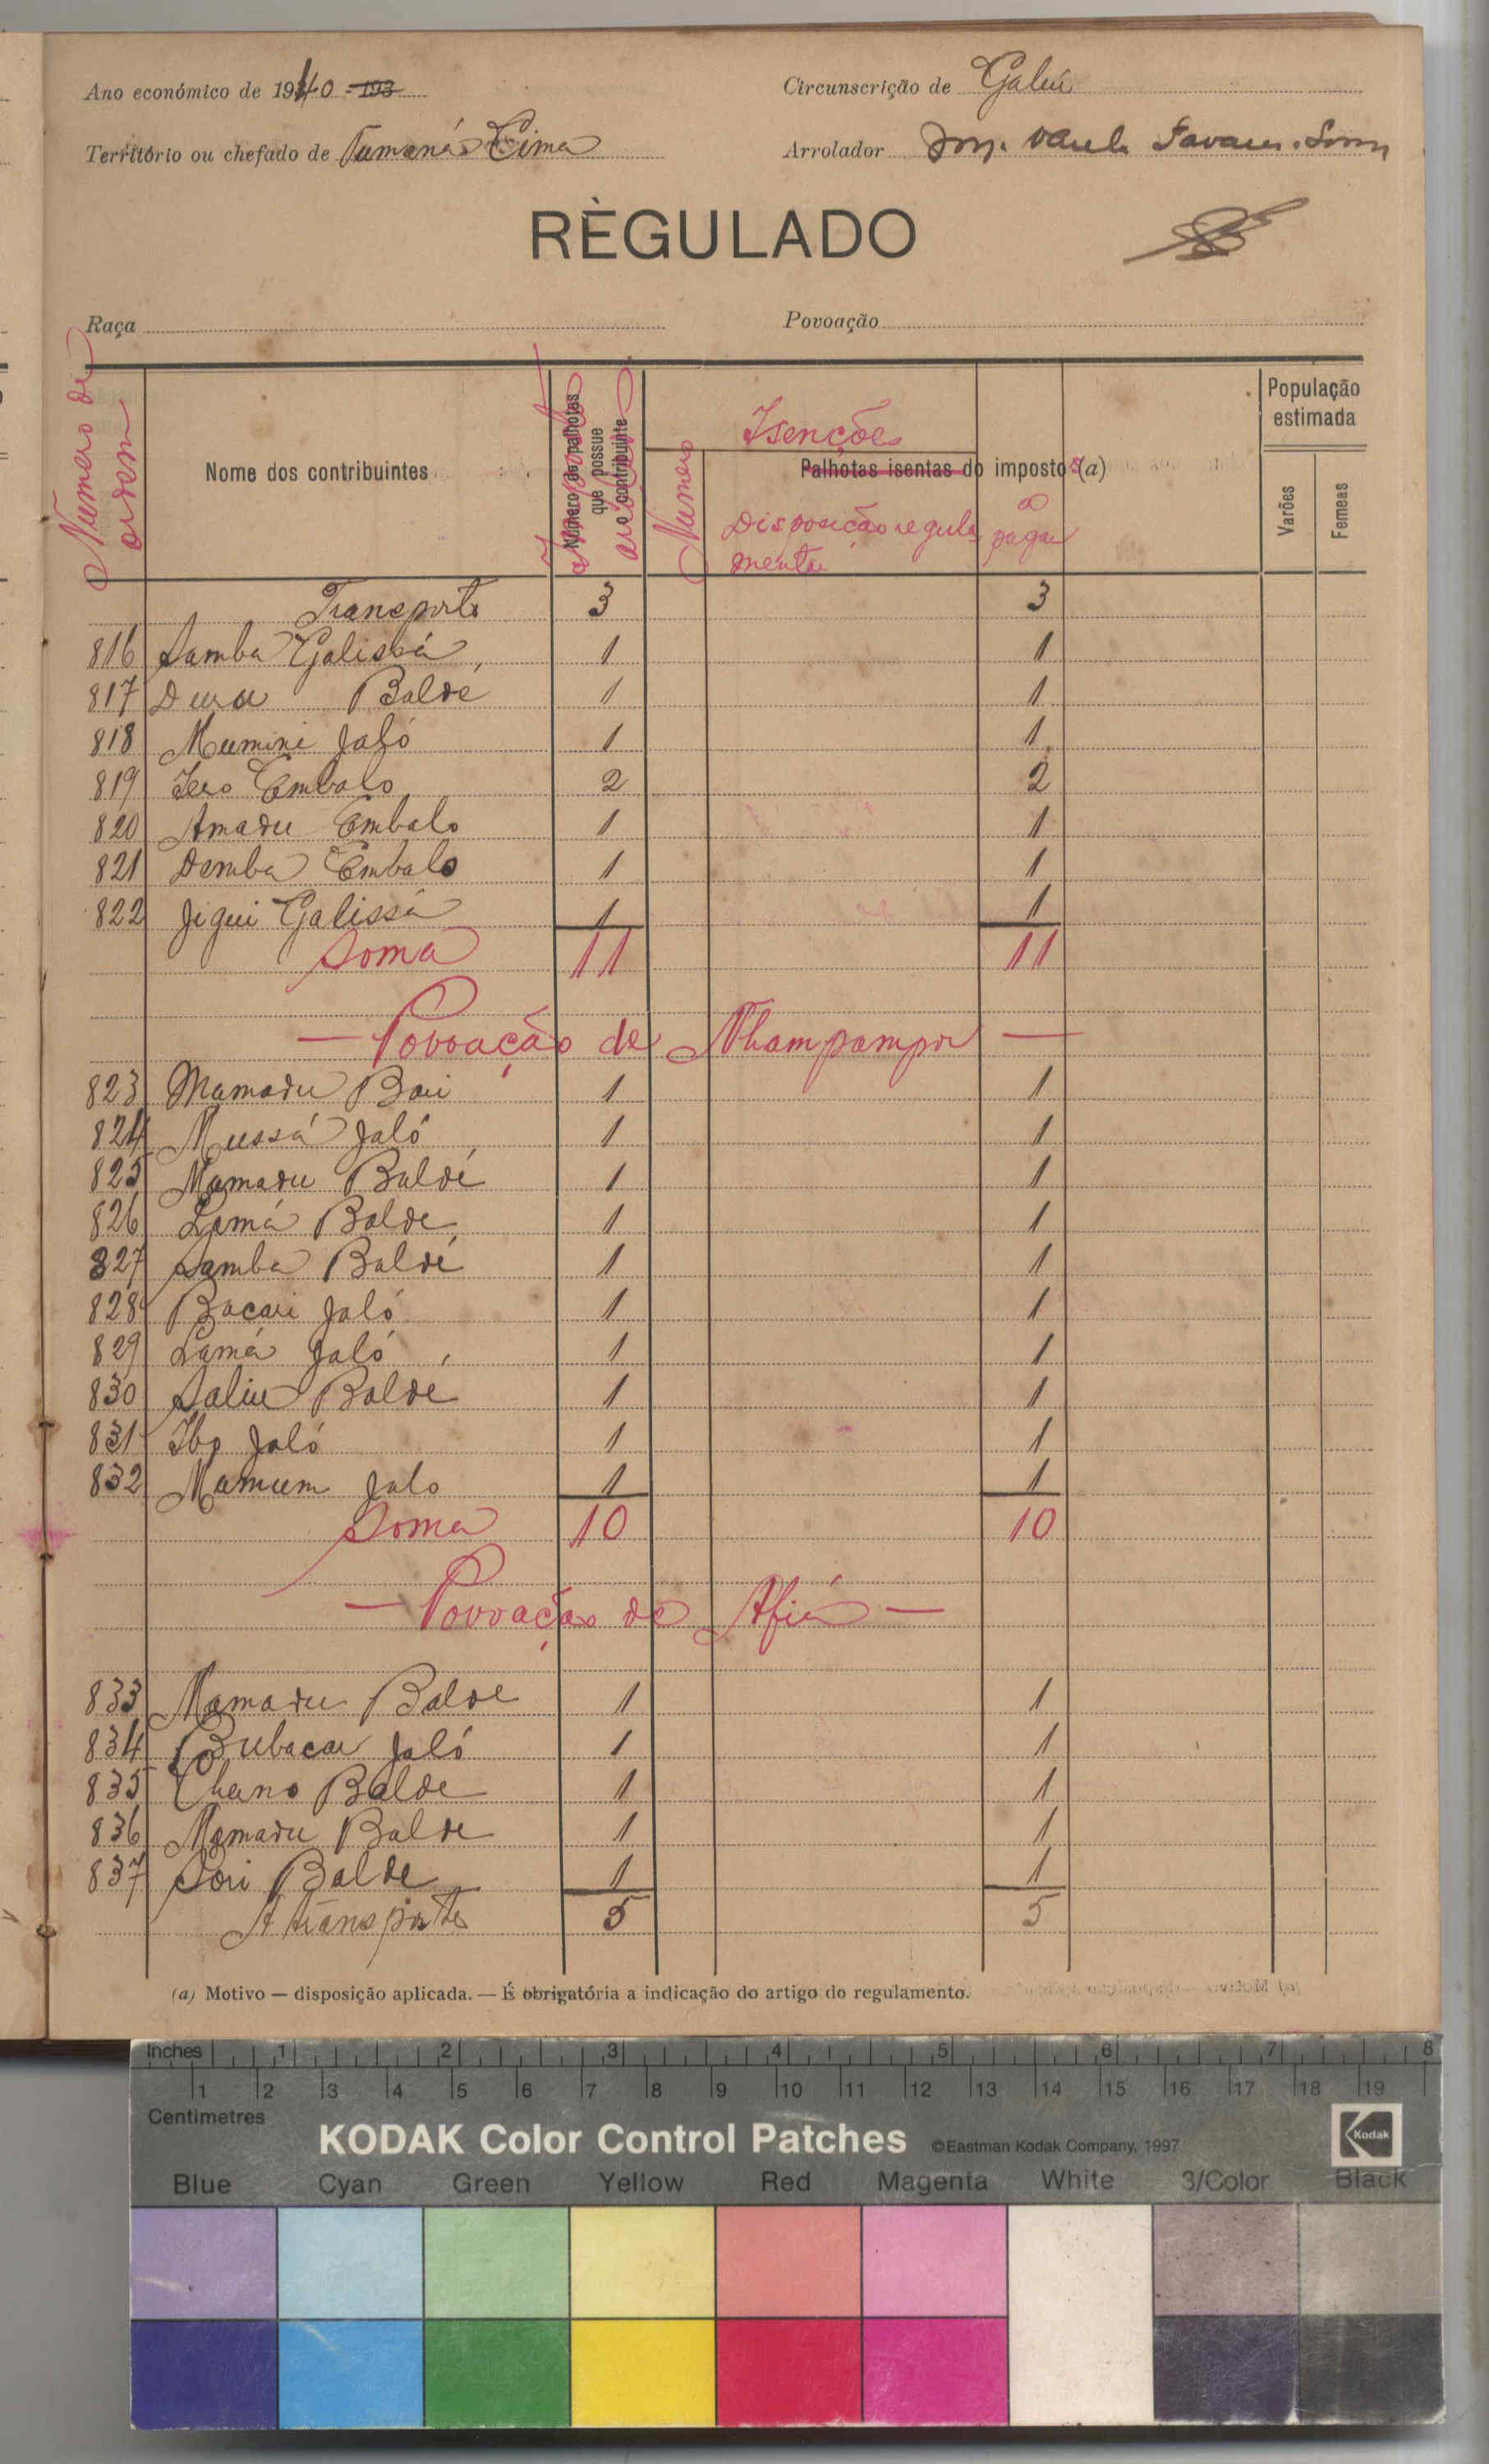 Ano económico de 1940 - 193
Circunscrição de Gabú
Território ou chefado de Tumaná Cima
Arrolador
RÈGULADO
Raça
Povoação
Numero de ordem
Nome dos contribuintes
Número de palhotas que possue o contribuinte
Isenções
Palhotas isentas do imposto (a)
Numero
Disposição regulamentar
a pagar
População estimada
Varões
Femeas
Transporte 3 3
816 Samba Galissá 1 1
817 Baldé 1 1
818 Mumini Jaló 1 1
819 Embalo 2 2
820 Amadu Embalo 1 1
821 Demba Embalo 1 1
822 Jigui Galissá 1 1
Soma 11 11
— Povoação de Nhampampor —
823 Mamadu Bari 1 1
824 Mussá Jaló 1 1
825 Mamadu Baldé 1 1
826 Lamá Balde 1 1
827 Samba Baldé 1 1
828 Bacari Jaló 1 1
829 Lamá Jaló 1 1
830 Saliu Balde 1 1
831 Ibo Jaló 1 1
832 Mamum Jalo 1 1
Soma 10 10
— Povoação de Afiá —
833 Mamadu Balde 1 1
834 Bubacar Jaló 1 1
835 Cherno Balde 1 1
836 Mamadu Balde 1 1
837 Sori Balde 1 1
A transportar 5 5
(a) Motivo — disposição aplicada. — É obrigatória a indicação do artigo do regulamento.
Inches 1 2 3 4 5 6 7 8
1 2 3 4 5 6 7 8 9 10 11 12 13 14 15 16 17 18 19
Centimetres
KODAK Color Control Patches ©Eastman Kodak Company, 1997 Kodak
Blue Cyan Green Yellow Red Magenta White 3/Color Black